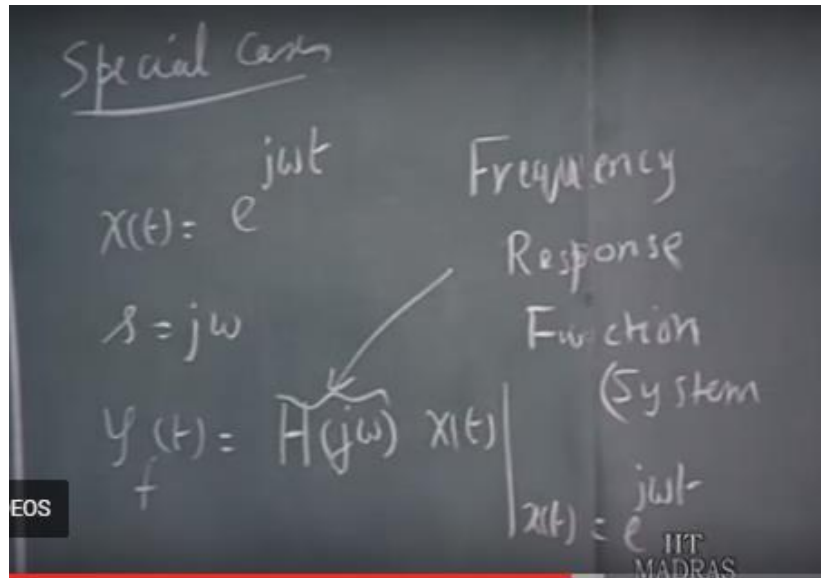 Special Cases
x(t) = e^{jωt}
s = jω
y_f(t) = H(jω) x(t) | x(t) = e^{jωt}
Frequency
Response
Function
(System
EOS
IIT
MADRAS